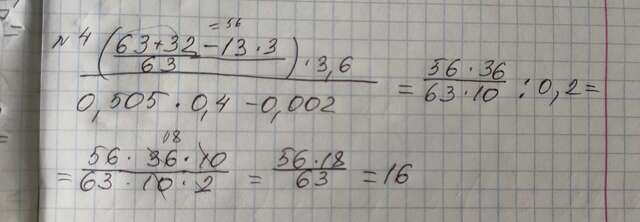 = 56
№4 ((63+32-13·3)/63)·3,6
0,505·0,4-0,002
= (56·36)/(63·10) : 0,2 =
18
= (56·36·10)/(63·10·2) = (56·18)/63 = 16